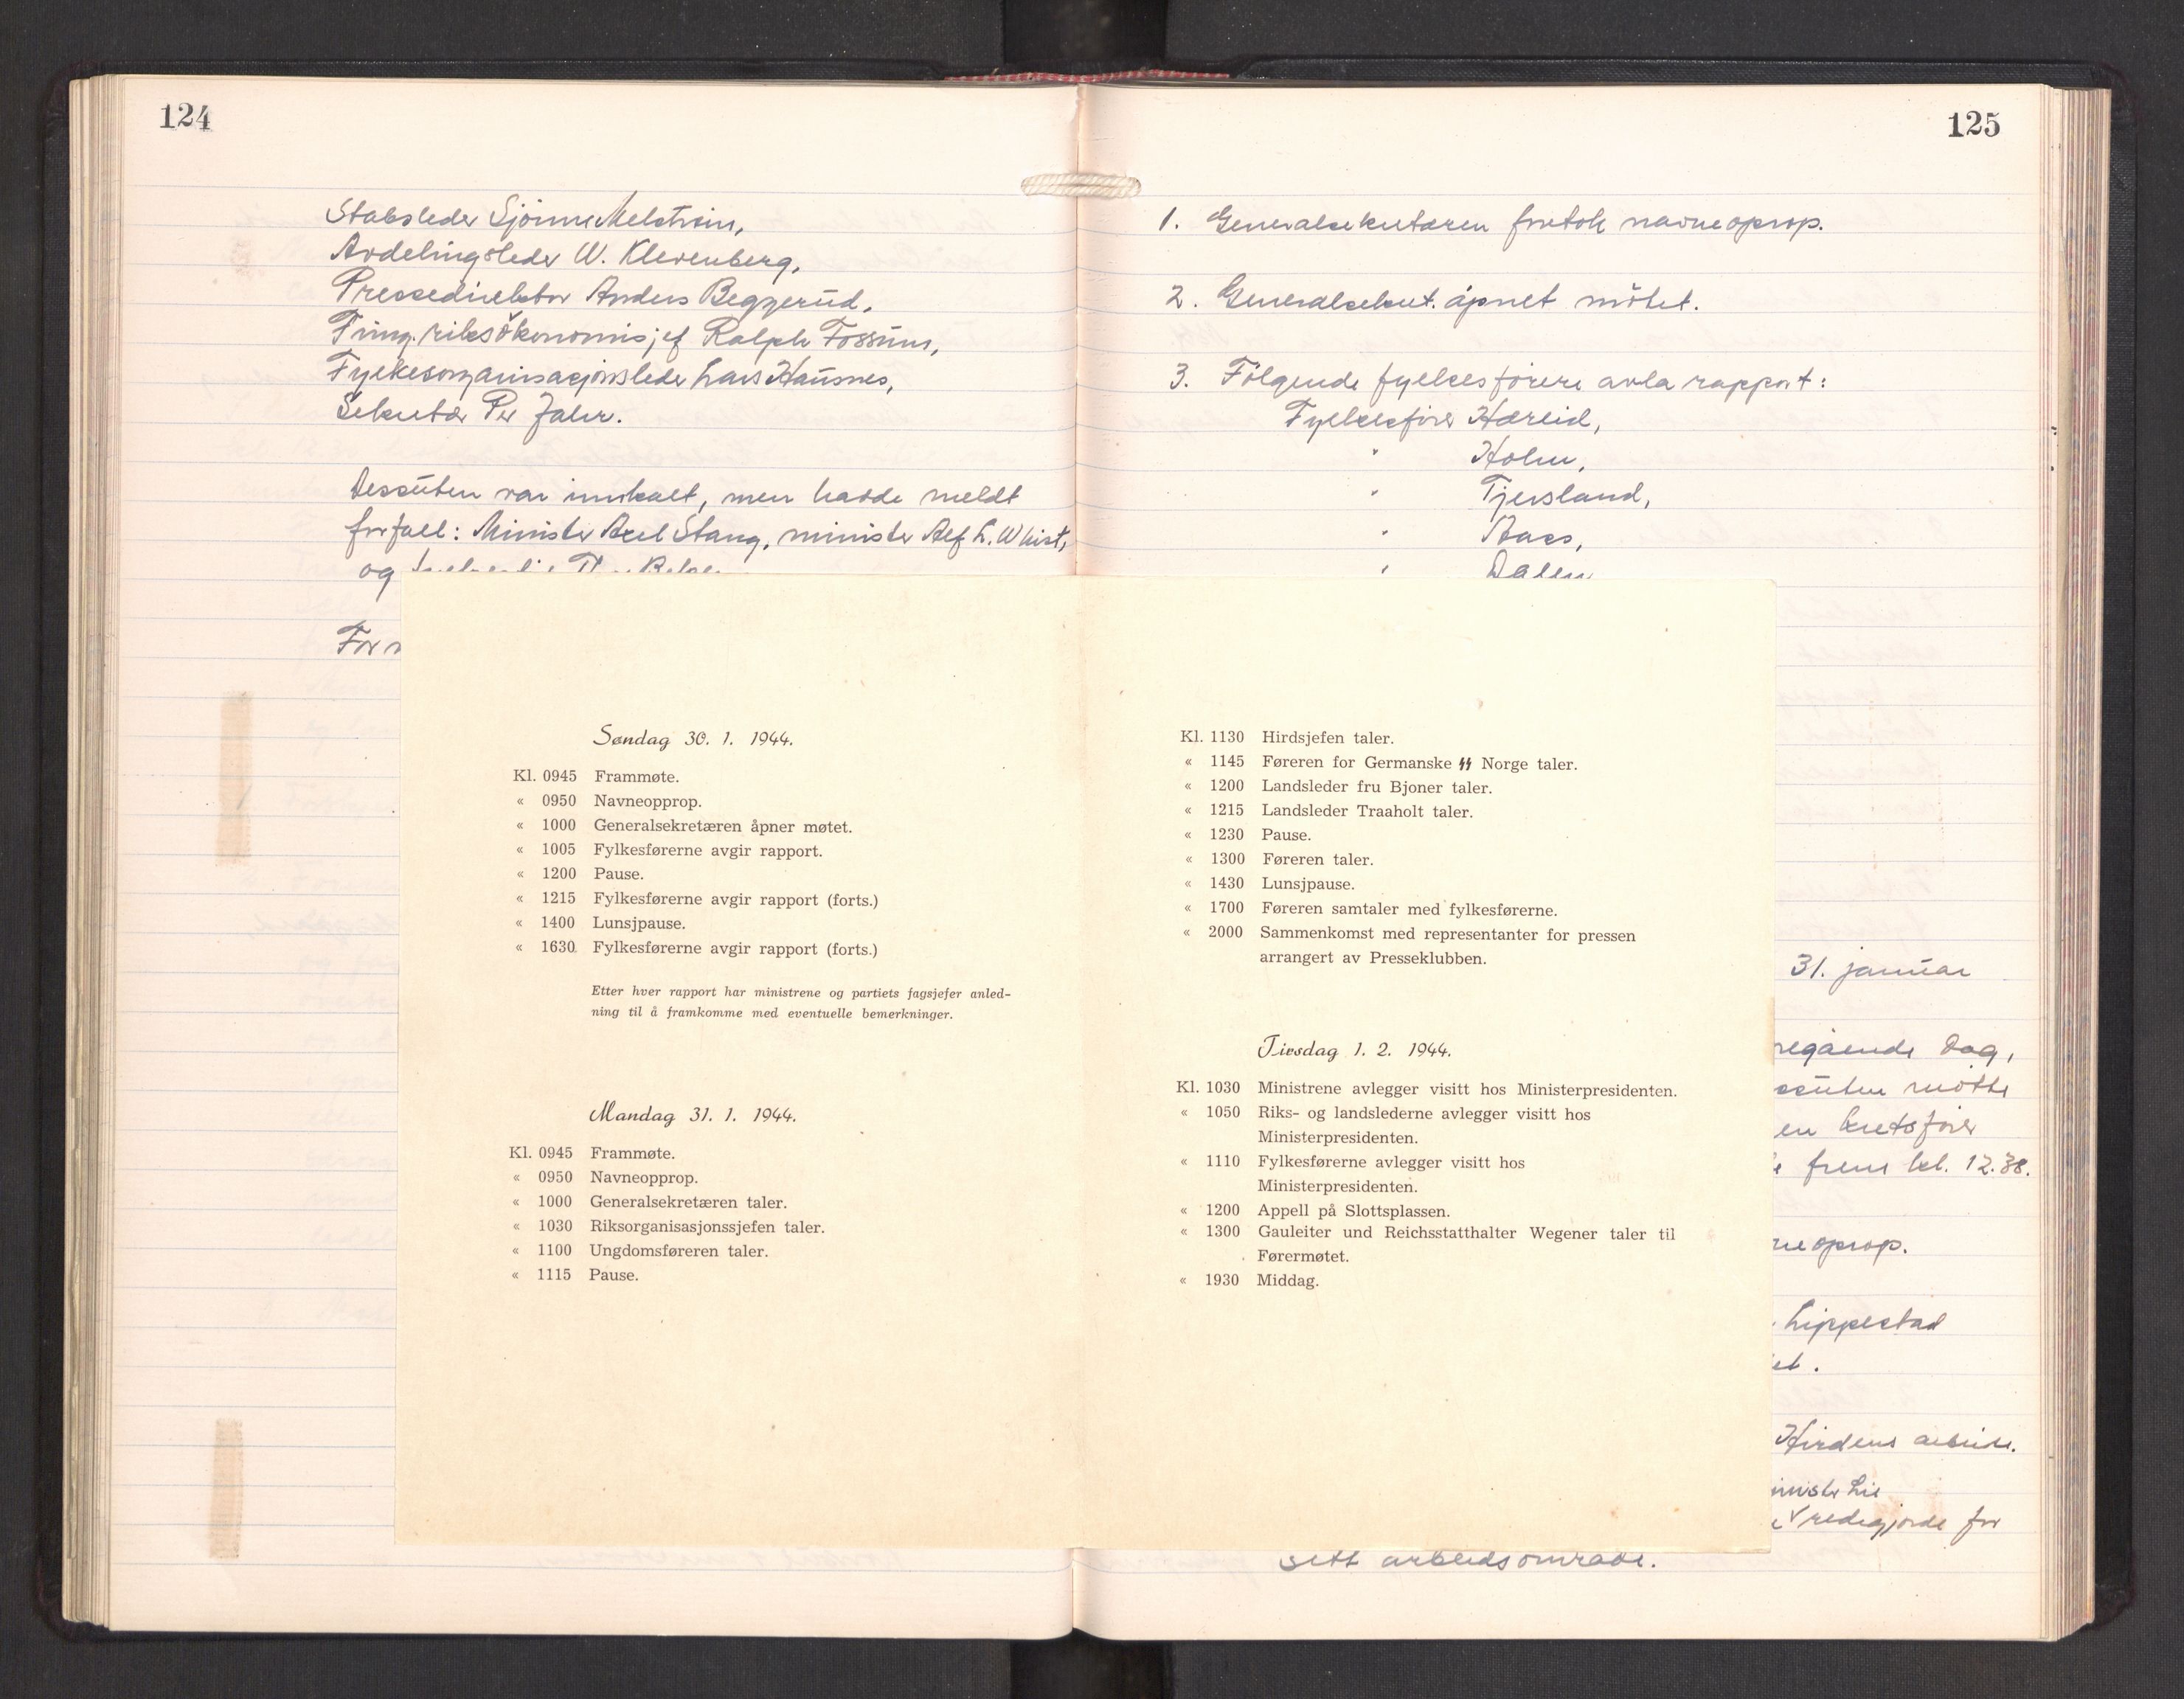 124
Stabsleder Sjönne Melstrøm,
Avdelingsleder W. Klevenberg,
Pressedirektør Anders Beggerud,
Fung. riksökonomisjef Ralph Fossum,
Fylkesorganisasjonsleder Lars Hausnes,
Sekretær Per Jahr.
Dessuten var innkalt, men hadde meldt
forfall: Minister Axel Stang, minister Alf L. Whist,
og
For
Søndag 30. 1. 1944.
Kl. 0945 Frammøte.
« 0950 Navneopprop.
« 1000 Generalsekretæren åpner møtet.
« 1005 Fylkesførerne avgir rapport.
« 1200 Pause.
« 1215 Fylkesførerne avgir rapport (forts.)
« 1400 Lunsjpause.
« 1630 Fylkesførerne avgir rapport (forts.)
Etter hver rapport har ministrene og partiets fagsjefer anled-
ning til å framkomme med eventuelle bemerkninger.
Mandag 31. 1. 1944.
Kl. 0945 Frammøte.
« 0950 Navneopprop.
« 1000 Generalsekretæren taler.
« 1030 Riksorganisasjonssjefen taler.
« 1100 Ungdomsføreren taler.
« 1115 Pause.
125
1. Generalsekretæren foretok navneoprop.
2. Generalsekret. åpnet mötet.
3. Fölgende fylkesförere avla rapport:
Fylkesförer Hæreid,
" Holm,
" Tjersland,
" Aass,
" Dalen
Kl. 1130 Hirdsjefen taler.
« 1145 Føreren for Germanske SS Norge taler.
« 1200 Landsleder fru Bjoner taler.
« 1215 Landsleder Traaholt taler.
« 1230 Pause.
« 1300 Føreren taler.
« 1430 Lunsjpause.
« 1700 Føreren samtaler med fylkesførerne.
« 2000 Sammenkomst med representanter for pressen
arrangert av Presseklubben.
Tirsdag 1. 2. 1944.
Kl. 1030 Ministrene avlegger visitt hos Ministerpresidenten.
« 1050 Riks- og landslederne avlegger visitt hos
Ministerpresidenten.
« 1110 Fylkesførerne avlegger visitt hos
Ministerpresidenten.
« 1200 Appell på Slottsplassen.
« 1300 Gauleiter und Reichsstatthalter Wegener taler til
Førermøtet.
« 1930 Middag.
31. januar
regående dag,
ssuten mötte
en kretsförer
frem kl. 12.38.
neoprop.
Lippestad
et.
Hirdens arbeide.
inister Lie
redegjorde for
sitt arbeidsområde.